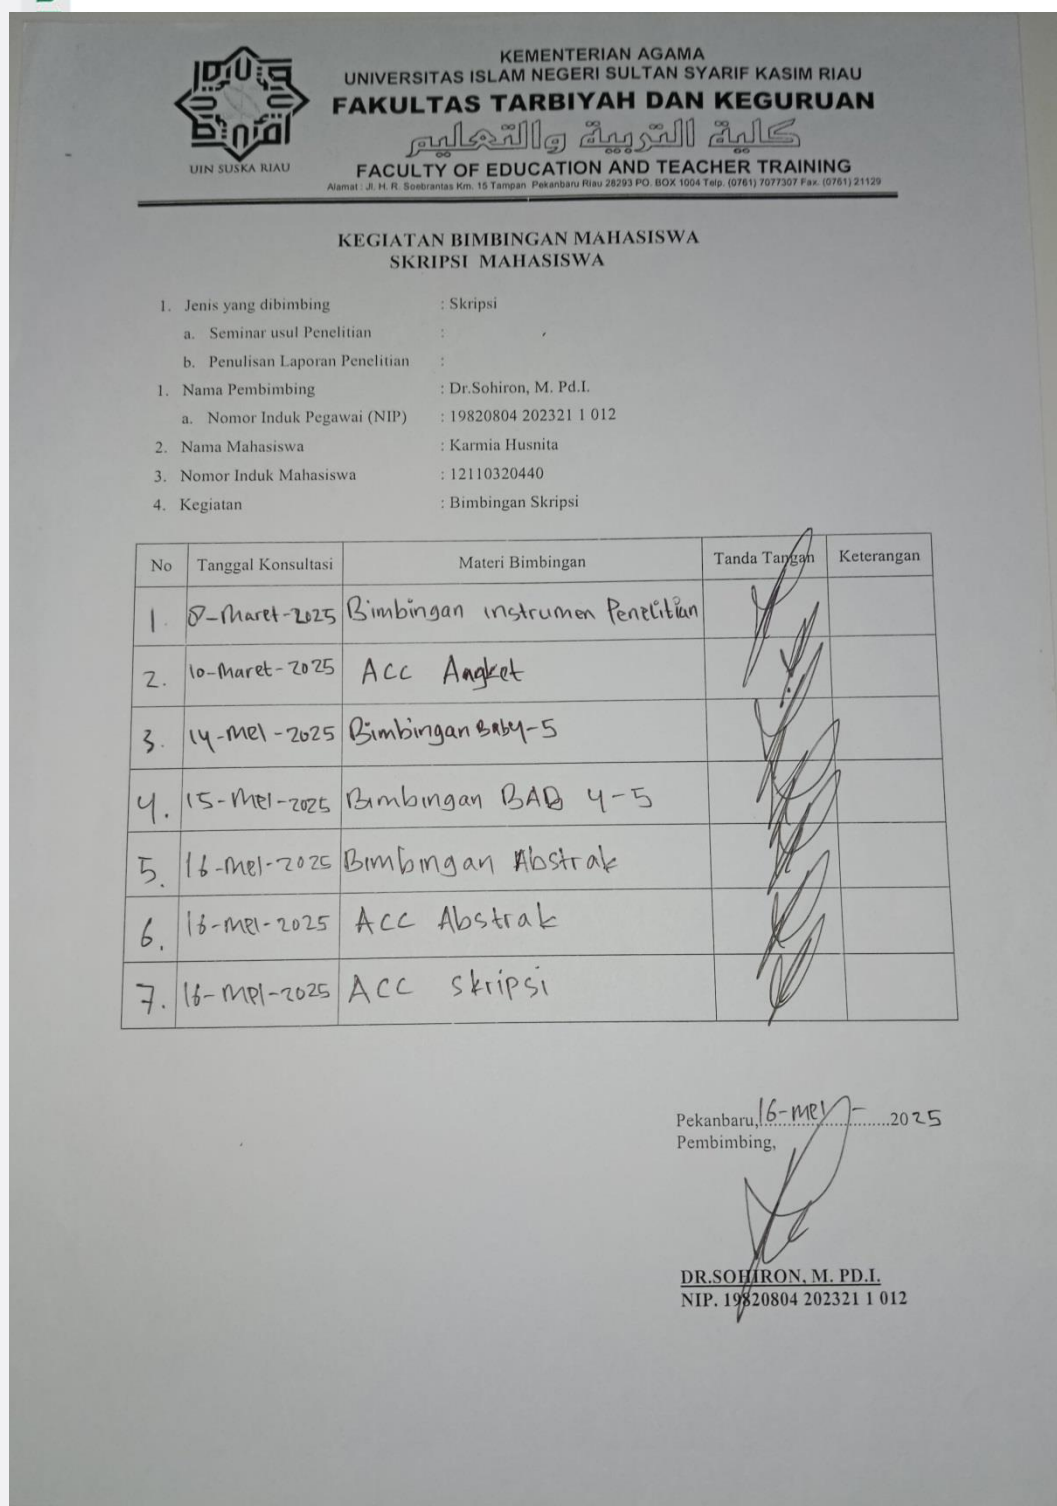 UIN SUSKA RIAU
KEMENTERIAN AGAMA
UNIVERSITAS ISLAM NEGERI SULTAN SYARIF KASIM RIAU
FAKULTAS TARBIYAH DAN KEGURUAN
كلية التربية والتعليم
FACULTY OF EDUCATION AND TEACHER TRAINING
Alamat : Jl. H. R. Soebrantas Km. 15 Tampan Pekanbaru Riau 28293 PO. BOX 1004 Telp. (0761) 7077307 Fax. (0761) 21129
KEGIATAN BIMBINGAN MAHASISWA
SKRIPSI MAHASISWA
1. Jenis yang dibimbing : Skripsi
a. Seminar usul Penelitian :
b. Penulisan Laporan Penelitian :
1. Nama Pembimbing : Dr.Sohiron, M. Pd.I.
a. Nomor Induk Pegawai (NIP) : 19820804 202321 1 012
2. Nama Mahasiswa : Karmia Husnita
3. Nomor Induk Mahasiswa : 12110320440
4. Kegiatan : Bimbingan Skripsi
No Tanggal Konsultasi Materi Bimbingan Tanda Tangan Keterangan
1. 8-Maret-2025 Bimbingan instrumen Penelitian
2. 10-Maret-2025 ACC Angket
3. 14-Mei-2025 Bimbingan Bab4-5
4. 15-Mei-2025 Bimbingan BAB 4-5
5. 16-Mei-2025 Bimbingan Abstrak
6. 16-Mei-2025 ACC Abstrak
7. 16-Mei-2025 ACC Skripsi
Pekanbaru, 16-Mei-2025
Pembimbing,
DR.SOHIRON, M. PD.I.
NIP. 19820804 202321 1 012